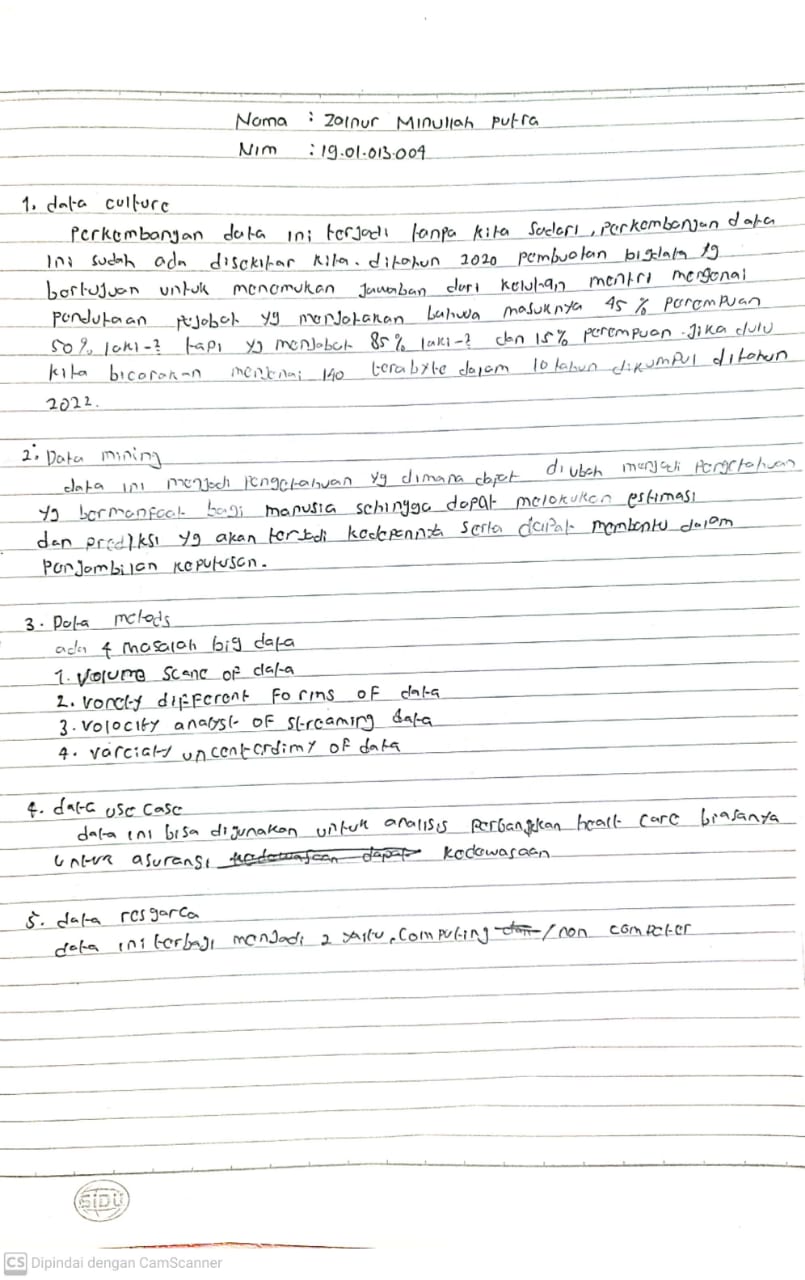 Nama : Zainur Minullah putra
Nim : 19.01.013.009
1. data culture
Perkembangan data ini terjadi tanpa kita sadari, perkembangan data
ini sudah ada disekitar kita. ditahun 2020 pembuatan bigdata yg
bertujuan untuk menemukan jawaban dari keluhan mentri mengenai
pejabat yg menjatakan bahwa masuknya 45 % perempuan
50% laki-2 tapi yg menjabat 85% laki-2 dan 15% perempuan. Jika dulu
kita bicarakan mengenai 140 terabyte dalam 10 tahun dikumpul ditahun
2022.
2. Data mining
data ini menjadi pengetahuan yg dimana dapat diubah menjadi pengetahuan
yg bermanfaat bagi manusia sehingga dapat melakukan estimasi
dan prediksi yg akan terjadi kedepannya serta dapat membantu dalam
panjambilan keputusan.
3. Data metods
ada 4 masalah big data
1. Volume scane of data
2. different forms of data
3. volocity analyst of streaming data
4. of data
4. data use case
data ini bisa digunakan untuk analisis perbangkan healt care biasanya
untuk asuransi kedewasaan dapat kedewasaan
5. data
data ini terbagi menjadi 2 yaitu, computing dan / non computer
SIDU
CS Dipindai dengan CamScanner